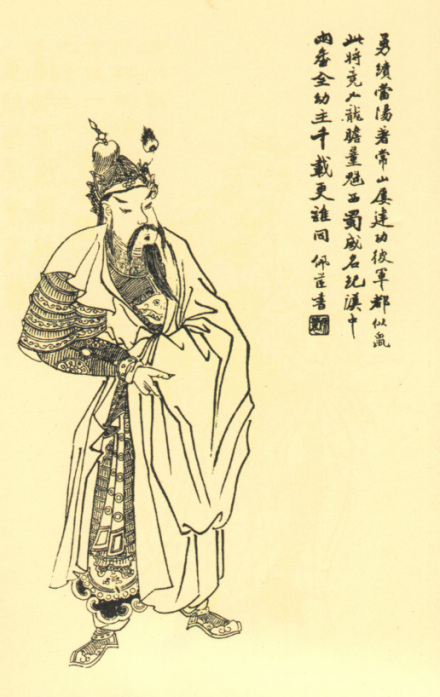 勇蹟當陽著常山屢建功彼軍都似鼠
此將竟如龍膽量魁西蜀威名紀漢中
兩番全幼主千載更誰同 佩書